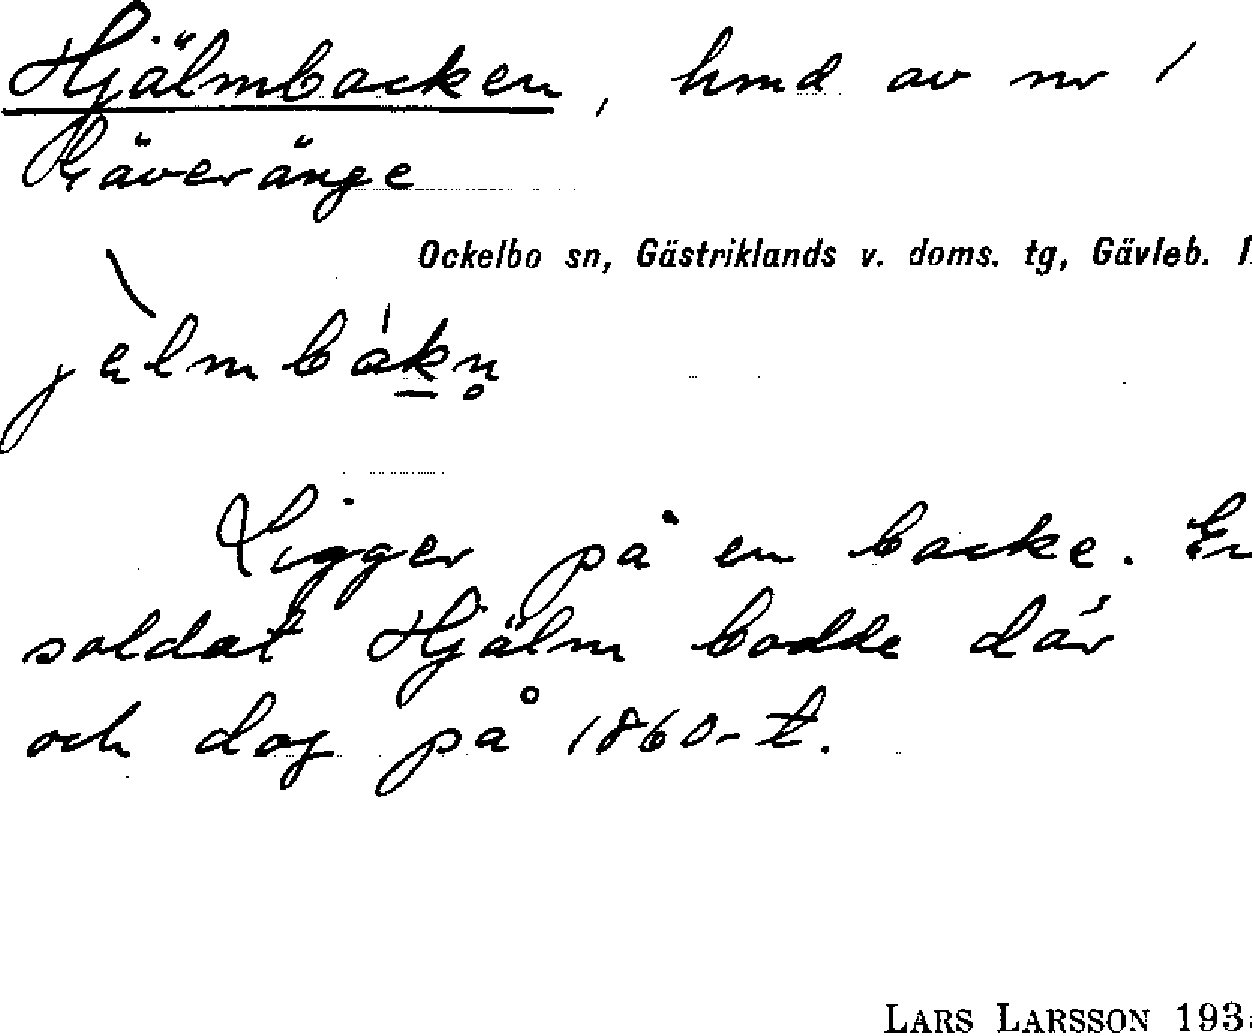 Hjälmbacken, hmd av nr 1
Räveränge
Ockelbo sn, Gästriklands v. doms. tg, Gävleb. l
jälmbákn̥
Ligger på en backe. En
soldat Hjälm bodde där
och dog på 1860-t.
LARS LARSSON 193